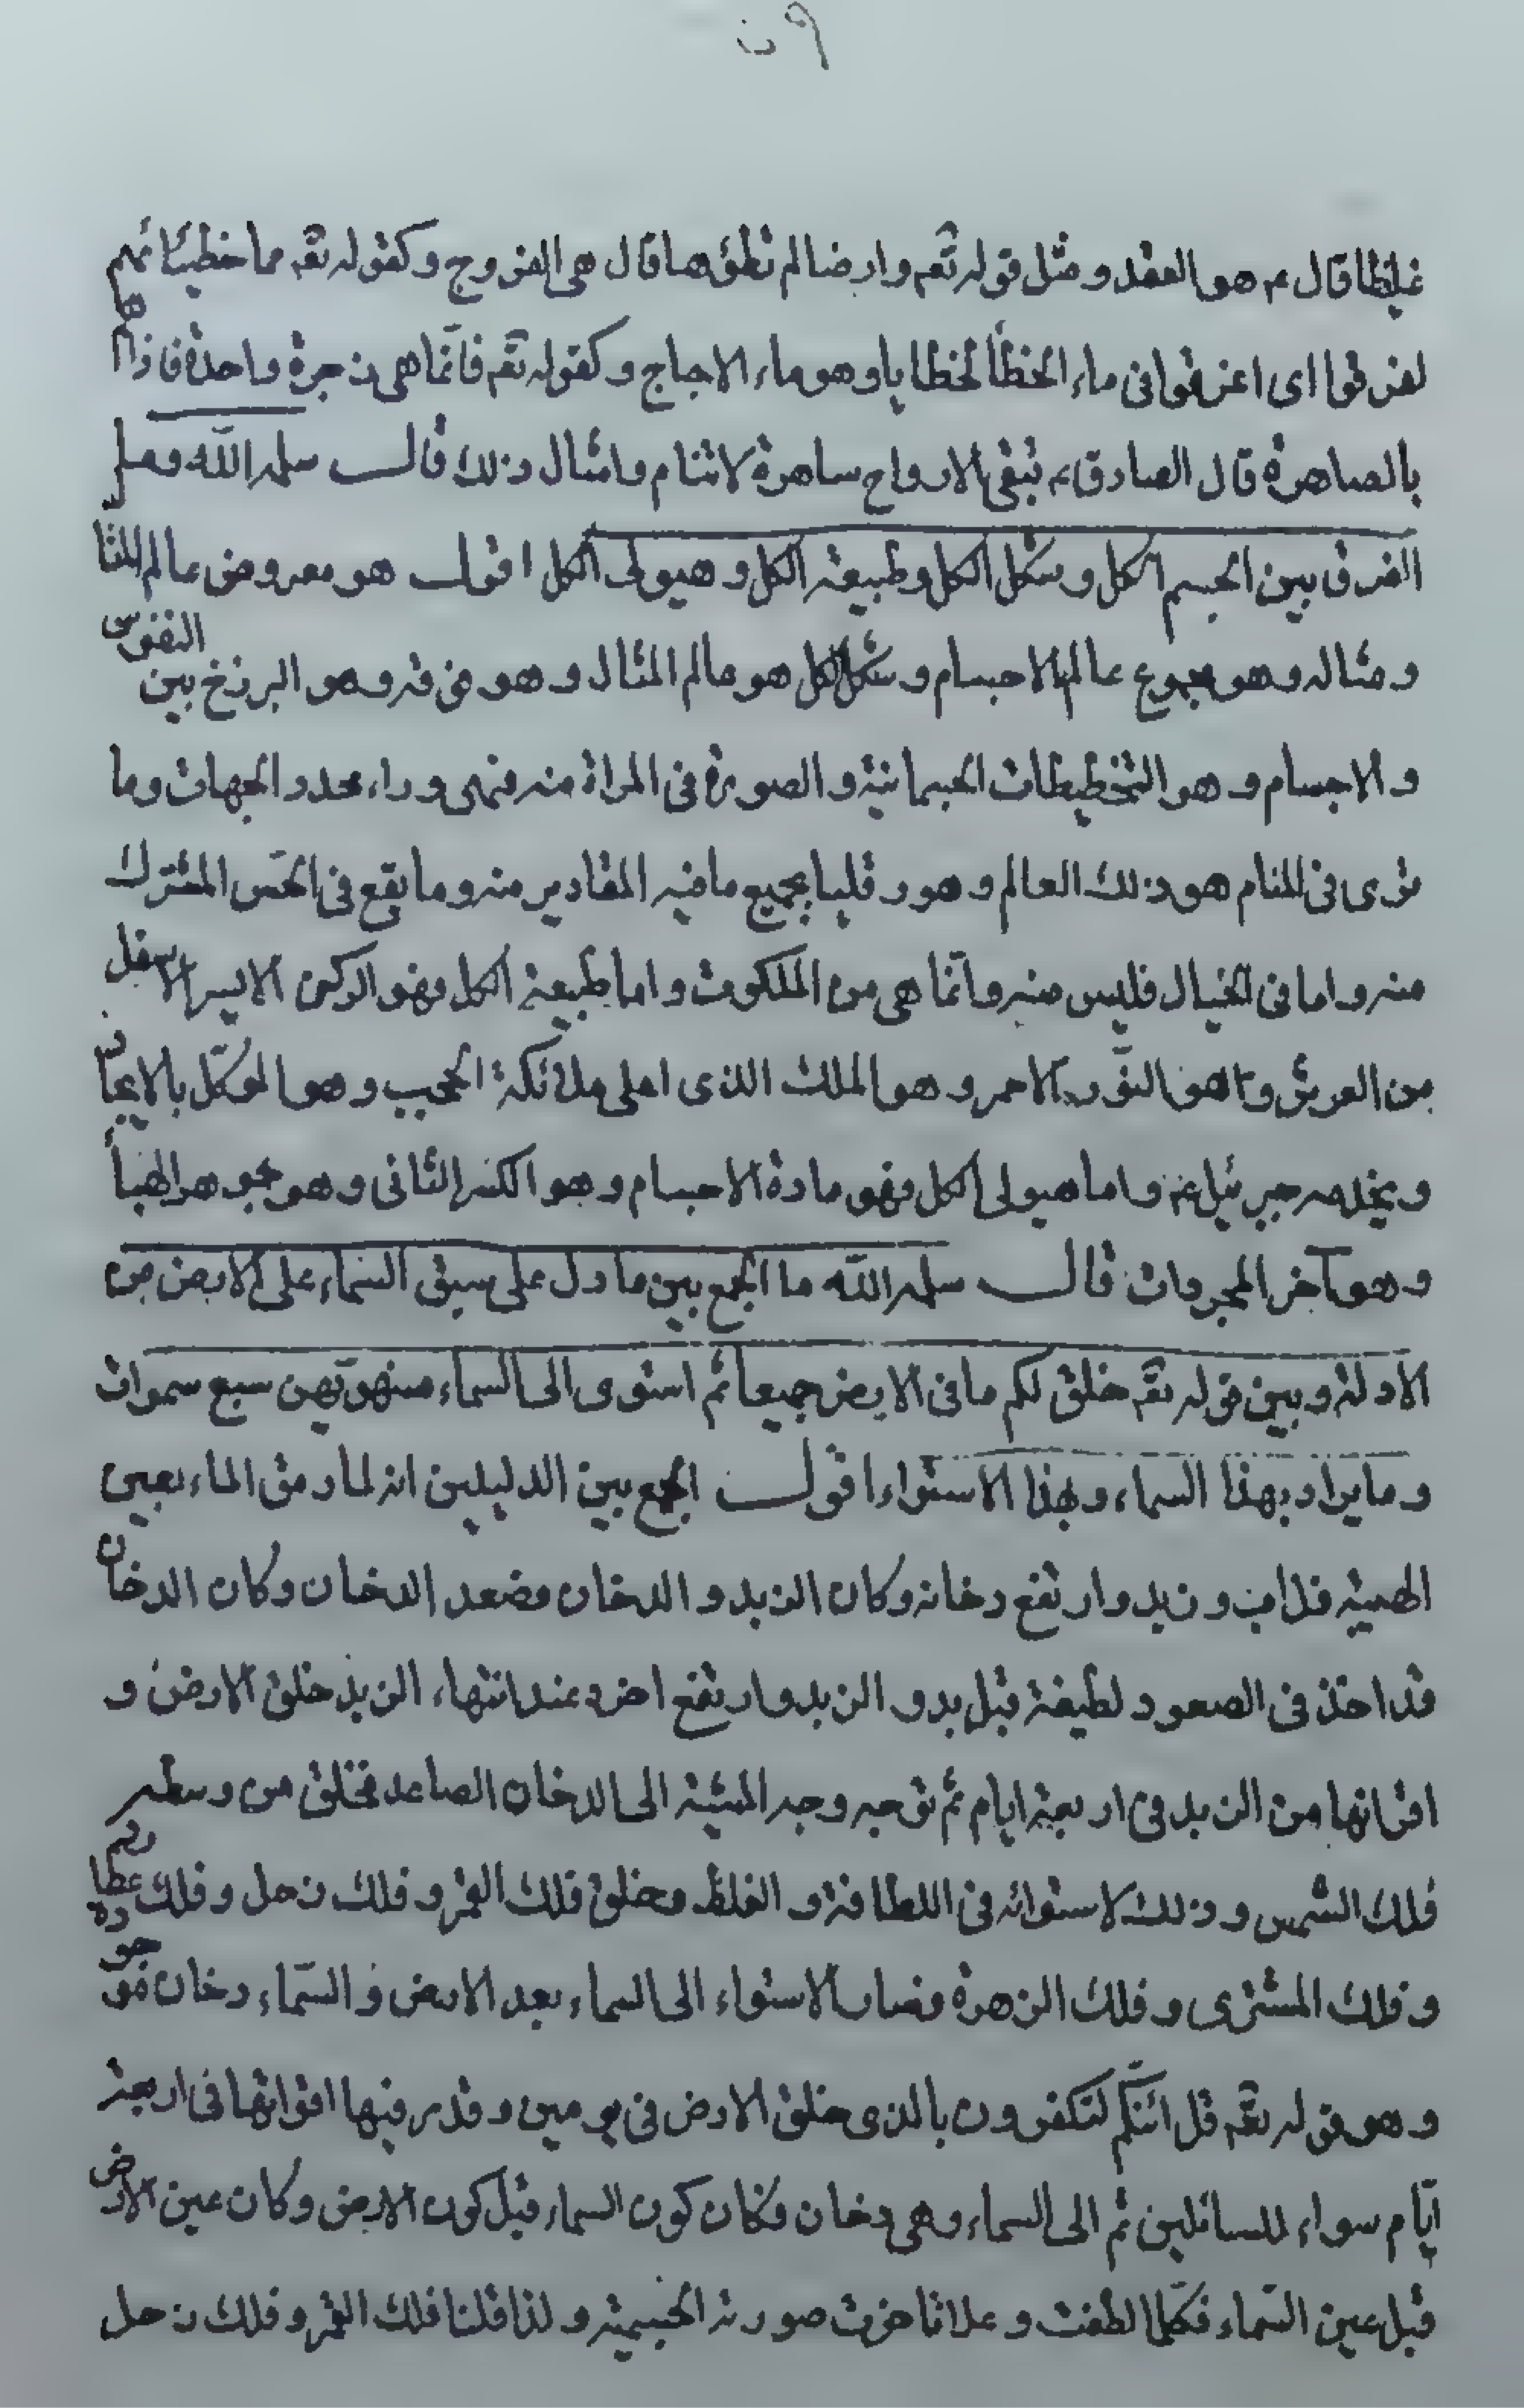 غليظا قال ع هو العقد ومثل قوله تعم وارضا لم تطؤها قال هى الفروج وكقوله تعم مما خطيئاتهم
اغرقوا اى اغرقوا فى ماء الخطأ لخطايا وهو ماء الاجاج وكقوله تعم فانما هى زجرة واحدة فاذا هم
بالساهرة قال الصادق ع تبقى الارواح ساهرة لا تنام وامثال ذلك قال سلمه الله وما
الفرق بين الجسم الكل وشكل الكل وطبيعة الكل وهيولى الكل اقول هو معروض عالم المثا
ومثاله وهو مجموع عالم الاجسام وشكل الكل هو عالم المثال وهو من فه وهو البرزخ بين النفوس
والاجسام وهو التخطيطات الجسمانية والصورة فى المراة منه فهى وراء محدد الجهات وما
ترى فى المنام هو ذلك العالم وهورقليا بجميع ما فيه المقادير منه وما يقع فى الحس المشترك
منه واما فى الخيال فليس منه وانما هى من الملكوت واما طبيعة الكل فهو الركن الايسر الاسفل
من العرش وهو النور الاحمر وهو الملك الذى اعلى ملائكة الحجب وهو الموكل بالايجاد
ويخدمه جبرئيل ع واما هيولى الكل فهو مادة الاجسام وهو الكسر الثانى وهو جوهر الهبأ
وهو آخر المجردات قال سلمه الله ما الجمع بين ما دل على سبق السماء على الارض من
الادلة وبين قوله تعم خلق لكم ما فى الارض جميعا ثم استوى الى السماء فسوّيهن سبع سموات
وما يراد بهذا السماء وبهذا الاستواء اقول الجمع بين الدليلين انه لما رمق الماء بعين
الهيبة فذاب وزبد وارتفع دخانه وكان الزبد والدخان فصعد الدخان وكان الدخان
قد اخذ فى الصعود لطيفة قبل بدو الزبد وارتفع اخره عند انتهاء الزبد خلق الارض و
اقواتها من الزبد فى اربعة ايام ثم توجه وجه المشية الى الدخان الصاعد فخلق من وسطه
فلك الشمس وذلك لاستوائه فى اللطافة والغلظ وخلق فلك القمر وفلك زحل وفلك عطارد
وفلك المشترى وفلك الزهرة فصار الاستواء الى السماء بعد الارض والسّماء دخان موجو
وهو قوله تعم قل ائنكم لتكفرون بالذى خلق الارض فى يومين وقدر فيها اقواتها فى اربعة
ايّام سواء للسائلين ثم الى السماء وهى دخان فكان كون السماء قبل كون الارض وكان عين الارض
قبل عين السّماء فكلما لطفت وعلا تاخرت صورته الجسمية ولذا قلنا فلك القمر وفلك زحل